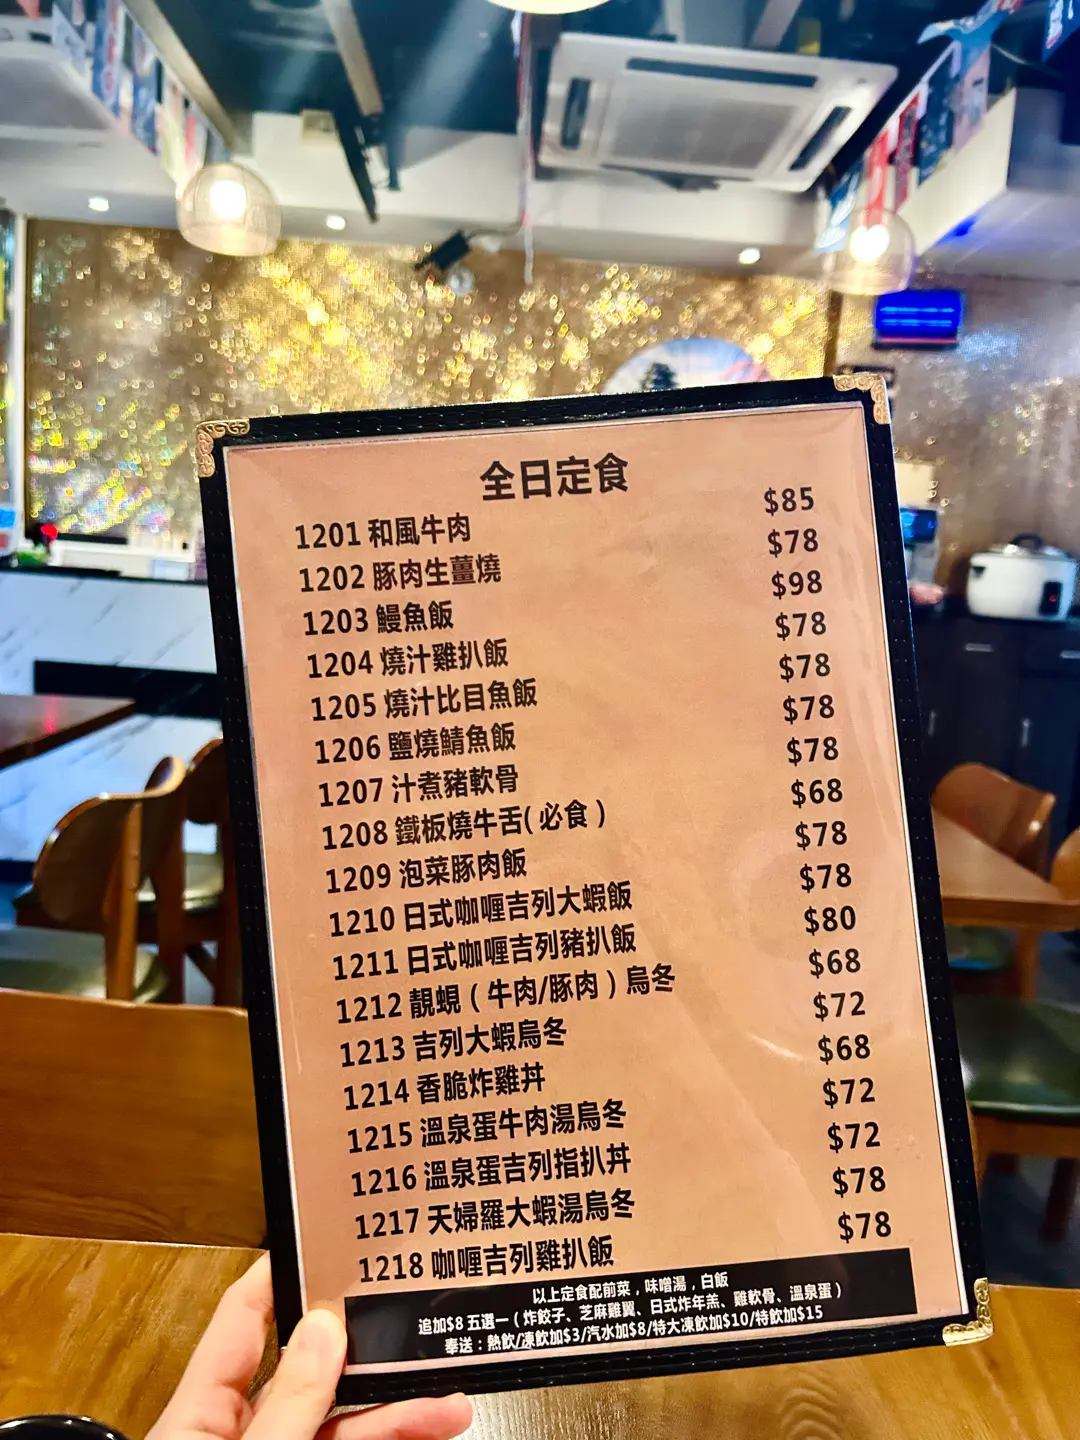 全日定食
1201 和風牛肉 $85
1202 豚肉生薑燒 $78
1203 鰻魚飯 $98
1204 燒汁雞扒飯 $78
1205 燒汁比目魚飯 $78
1206 鹽燒鯖魚飯 $78
1207 汁煮豬軟骨 $78
1208 鐵板燒牛舌(必食) $68
1209 泡菜豚肉飯 $78
1210 日式咖喱吉列大蝦飯 $78
1211 日式咖喱吉列豬扒飯 $80
1212 靚蜆(牛肉/豚肉)烏冬 $68
1213 吉列大蝦烏冬 $72
1214 香脆炸雞丼 $68
1215 溫泉蛋牛肉湯烏冬 $72
1216 溫泉蛋吉列指扒丼 $72
1217 天婦羅大蝦湯烏冬 $78
1218 咖喱吉列雞扒飯 $78
以上定食配前菜，味噌湯，白飯
追加$8 五選一(炸餃子、芝麻雞翼、日式炸年羔、雞軟骨、溫泉蛋)
奉送：熱飲/凍飲加$3/汽水加$8/特大凍飲加$10/特飲加$15